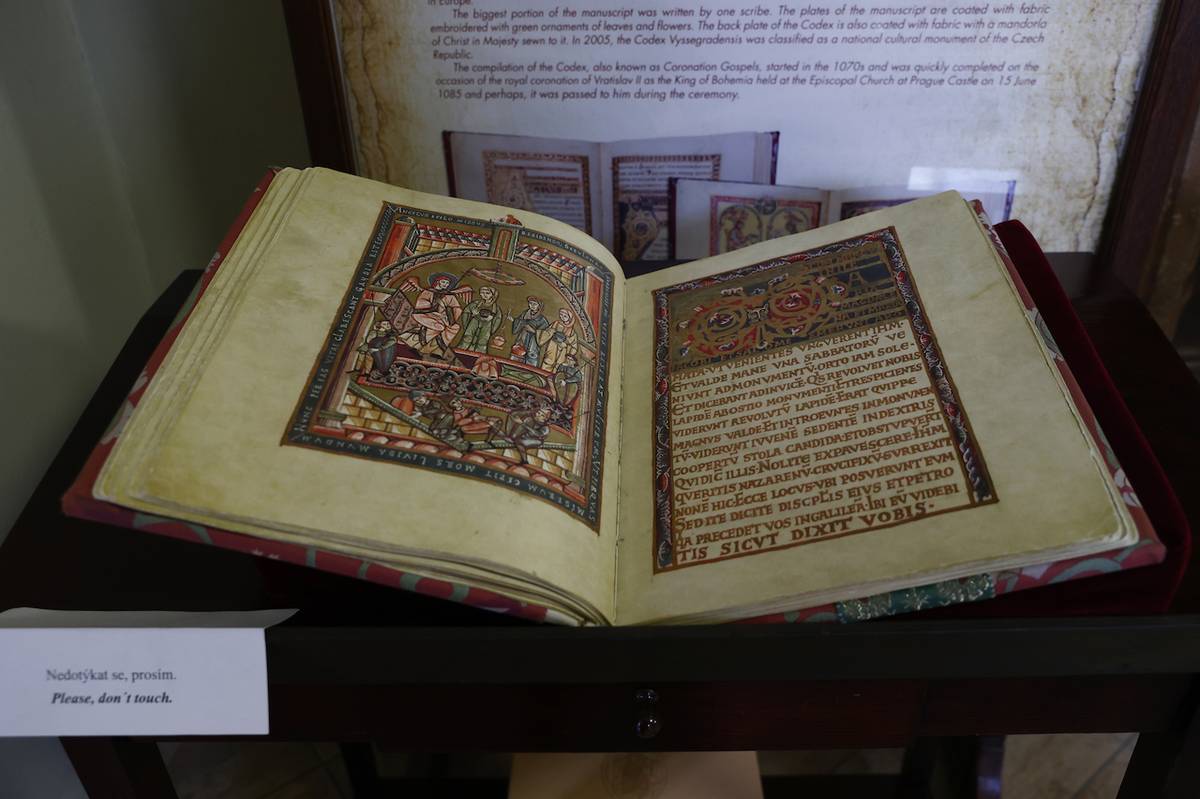 in Europe.
The biggest portion of the manuscript was written by one scribe. The plates of the manuscript are coated with fabric
embroidered with green ornaments of leaves and flowers. The back plate of the Codex is also coated with fabric with a mandorla
of Christ in Majesty sewn to it. In 2005, the Codex Vyssegradensis was classified as a national cultural monument of the Czech
Republic.
The compilation of the Codex, also known as Coronation Gospels, started in the 1070s and was quickly completed on the
occasion of the royal coronation of Vratislav II as the King of Bohemia held at the Episcopal Church at Prague Castle on 15 June
1085 and perhaps, it was passed to him during the ceremony.
MISERVM CEDIT MORS LIVIDA MVNDVM
MATA·VT VENIENTES VNGVERENT IHM
ET VALDE MANE VNA SABBATORV VE
NIVNT AD MONVMENTV·ORTO IAM SOLE·
ET DICEBANT ADINVICE·QIS REVOLVET NOBIS
LAPIDE ABOSTIO MONVMENTI·ET RESPICIENTES
VIDERVNT REVOLVTV LAPIDE·ERAT QVIPPE
MAGNVS VALDE·ET INTROEVNTES IN MONVMEN
TV·VIDERVNT IVVENE SEDENTE IN DEXTRIS
COOPERTV STOLA CANDIDA·ET OBSTVPVERT
QVI DIC ILLIS·NOLITE EXPAVESCERE·IHM
QVERITIS NAZARENV·CRVCIFIXV·SVRREXIT
NONE HIC·ECCE LOCVS·VBI POSVERVNT EVM
SED ITE DICITE DISCPLIS EIVS ET PETRO
QIA PRECEDET VOS IN GALILEA·IBI EV VIDEBI
TIS SICVT DIXIT VOBIS·
Nedotýkat se, prosím.
Please, don´t touch.